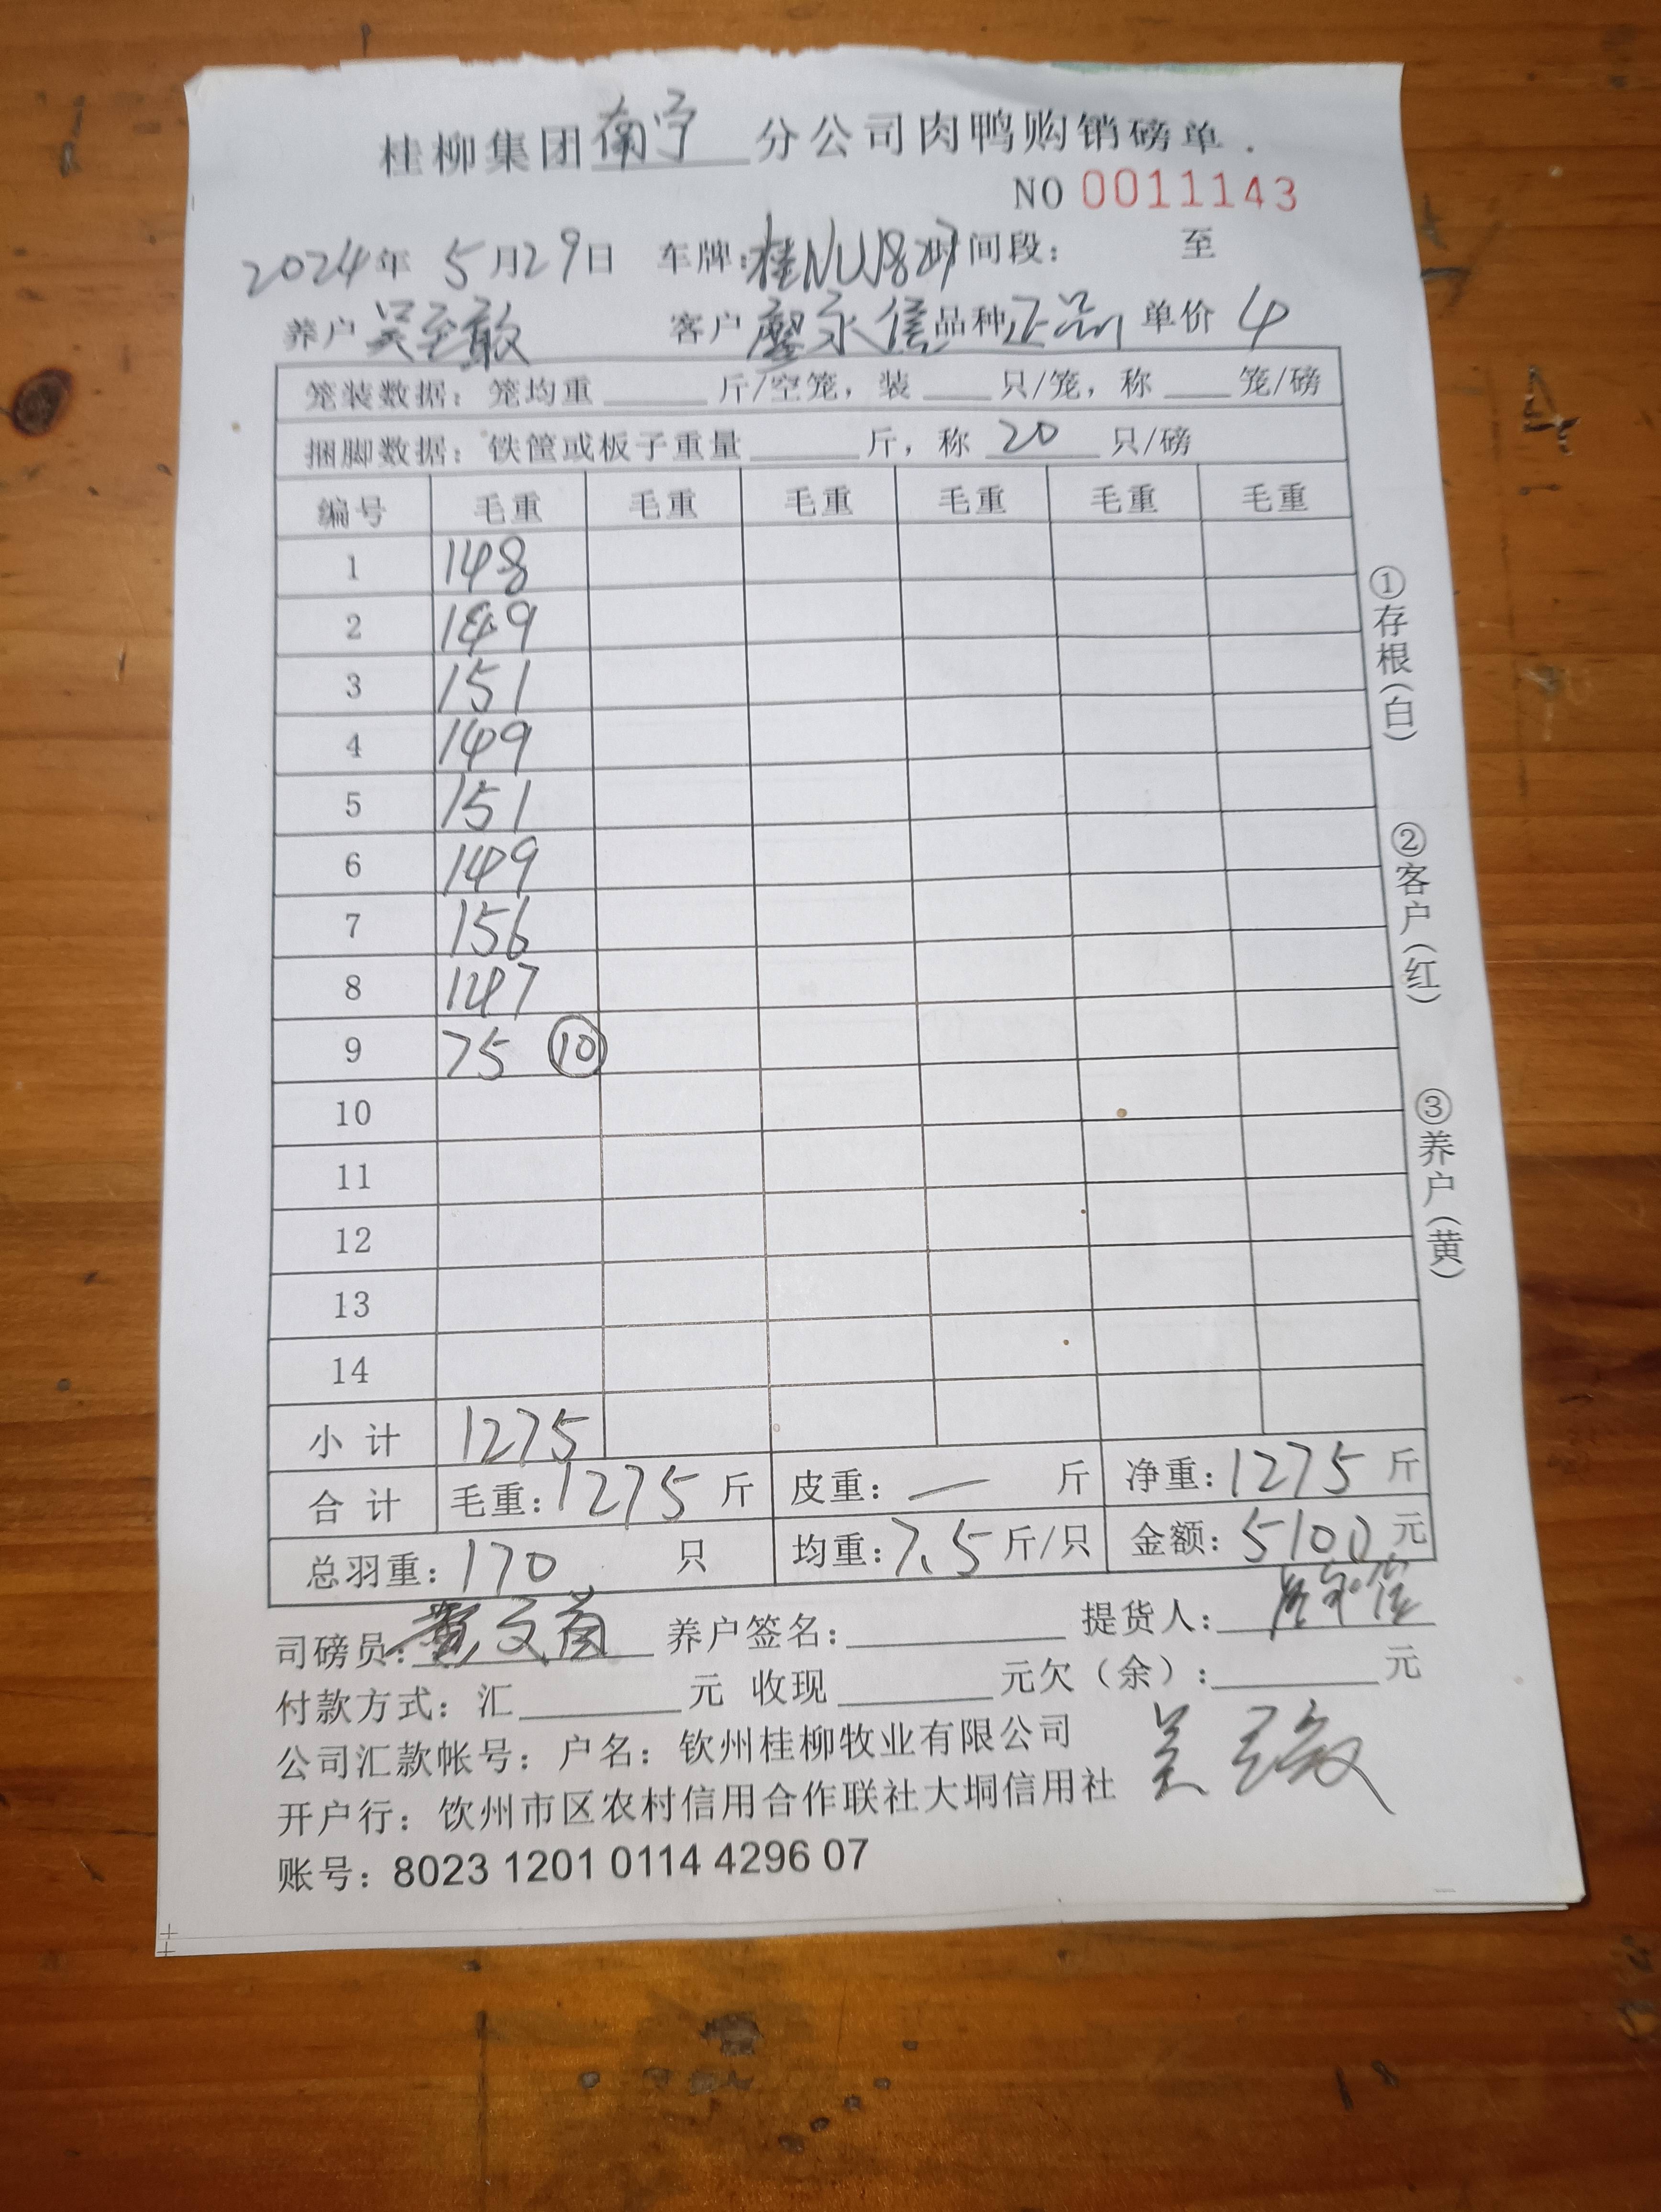 桂柳集团南宁分公司肉鸭购销磅单.
NO 0011143
2024年 5月29日 车牌:桂NU1827 时间段: 至
养户 吴至敢 客户 廖永信 品种 正品 单价 4
笼装数据: 笼均重 斤/空笼, 装 只/笼, 称 笼/磅
捆脚数据: 铁筐或板子重量 斤, 称 20 只/磅
编号 毛重 毛重 毛重 毛重 毛重 毛重
1 148
2 149
3 151
4 149
5 151
6 149
7 156
8 147
9 75 ⑩
10
11
12
13
14
小计 1275
合计 毛重:1275斤 皮重:— 斤 净重:1275斤
总羽重:170 只 均重:7.5斤/只 金额:5100元
司磅员: 养户签名: 提货人:
付款方式: 汇 元 收现 元欠(余): 元
公司汇款帐号: 户名: 钦州桂柳牧业有限公司
开户行: 饮州市区农村信用合作联社大垌信用社
账号: 8023 1201 0114 4296 07
①存根(白)
②客户(红)
③养户(黄)